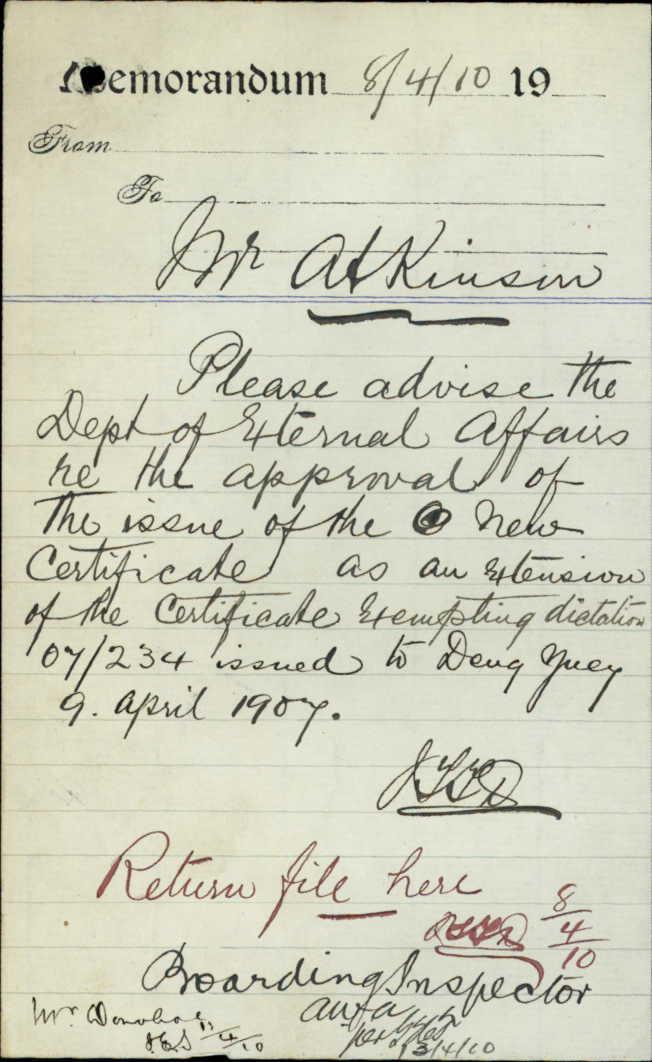 Memorandum 8/4/10 19
From
To
Mr Atkinson
Please advise the
Dept of External Affairs
re the approval of
the issue of the new
Certificate as an extension
of the Certificate Exempting dictation
07/234 issued to Deug Yuey
9. April 1907.
Return file here
8/4/10
Boarding Inspector
Mr Donohoe
4/10
13/4/10